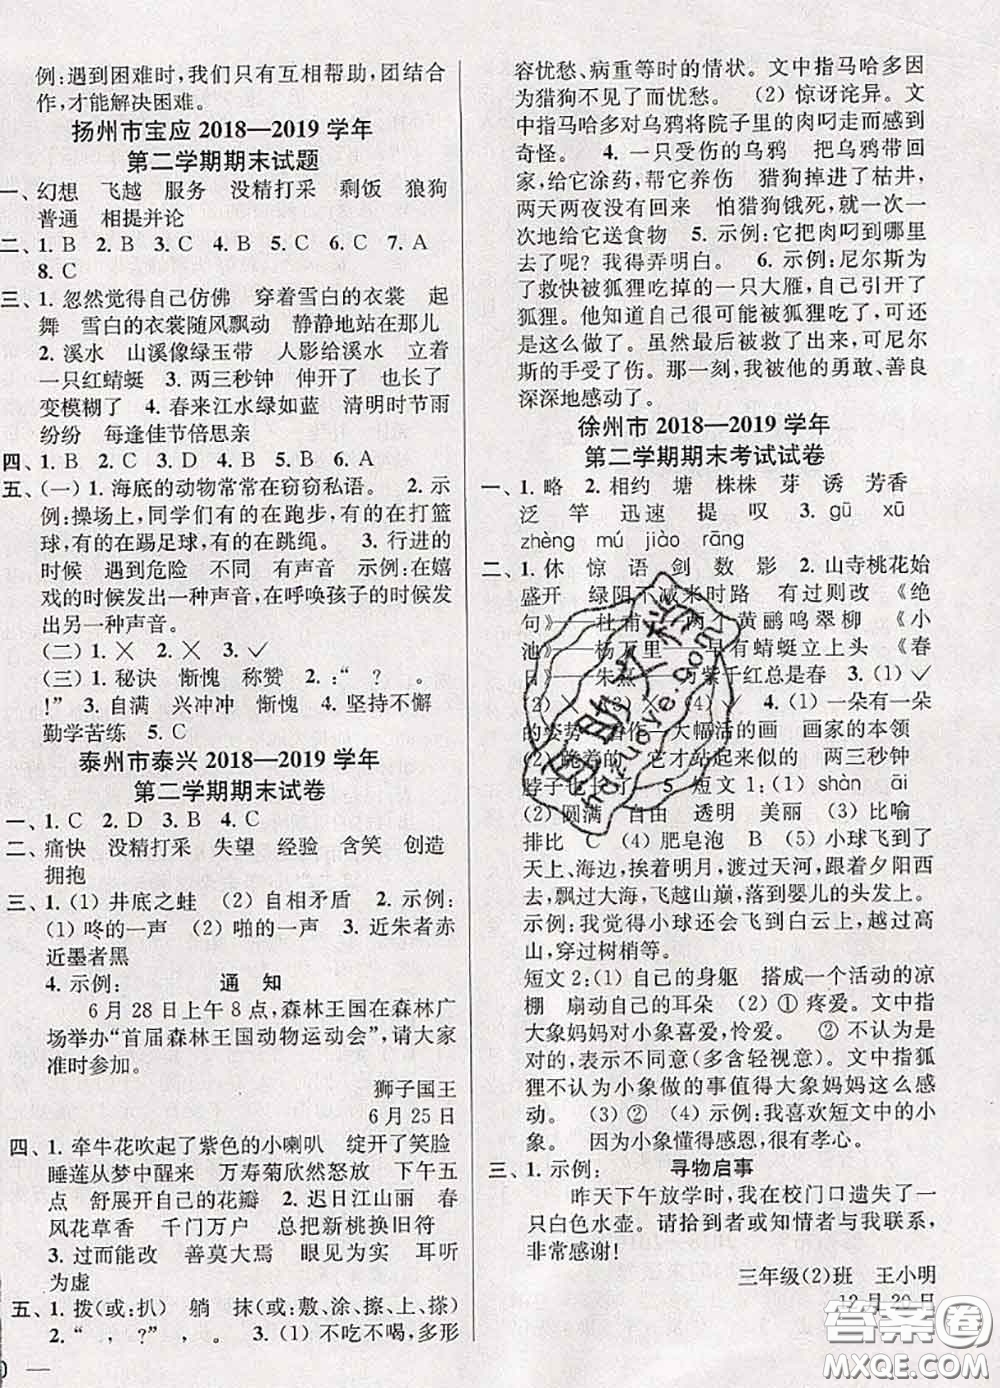 例:遇到困难时,我们只有互相帮助,团结合
作,才能解决困难。
扬州市宝应 2018—2019 学年
第二学期期末试题
一、幻想 飞越 服务 没精打采 剩饭 狼狗
普通 相提并论
二、1. B 2. B 3. C 4. B 5. C 6. C 7. A
8. C
三、1. 忽然觉得自己仿佛 穿着雪白的衣裳 起
舞 雪白的衣裳随风飘动 静静地站在那儿
2. 溪水 山溪像绿玉带 人影给溪水 立着
一只红蜻蜓 3. 两三秒钟 伸开了 也长了
变模糊了 4. 春来江水绿如蓝 清明时节雨
纷纷 每逢佳节倍思亲
四、1. B 2. C 3. A 4. B 5. C
五、(一) 1. 海底的动物常常在窃窃私语。 2. 示
例:操场上,同学们有的在跑步,有的在打篮
球,有的在踢足球,有的在跳绳。 3. 行进的
时候 遇到危险 不同 有声音 示例:在嬉
戏的时候发出一种声音,在呼唤孩子的时候发
出另一种声音。
(二) 1. ✕ 2. ✕ 3. ✓
(三) 1. 秘诀 惭愧 称赞 2. :“ ? , 。
!” 3. 自满 兴冲冲 惭愧 4. 坚持不懈
勤学苦练 5. C
泰州市泰兴 2018—2019 学年
第二学期期末试卷
一、1. C 2. D 3. B 4. C
二、痛快 没精打采 失望 经验 含笑 创造
拥抱
三、1. (1) 井底之蛙 (2) 自相矛盾 2. 示例:
(1) 咚的一声 (2) 啪的一声 3. 近朱者赤
近墨者黑
4. 示例: 通 知
6 月 28 日上午 8 点,森林王国在森林广
场举办“首届森林王国动物运动会”,请大家
准时参加。
狮子国王
6 月 25 日
四、1. 牵牛花吹起了紫色的小喇叭 绽开了笑脸
睡莲从梦中醒来 万寿菊欣然怒放 下午五
点 舒展开自己的花瓣 2. 迟日江山丽 春
风花草香 千门万户 总把新桃换旧符
3. 过而能改 善莫大焉 眼见为实 耳听
为虚
五、1. 拨(或:扒) 躺 抹(或:敷、涂、擦、上、搽)
2. “ , ?” , 。 3. (1) 不吃不喝,多形
容忧愁、病重等时的情状。文中指马哈多因
为猎狗不见了而忧愁。 (2) 惊讶诧异。文中
指马哈多对乌鸦将院子里的肉叼走而感到
奇怪。 4. 一只受伤的乌鸦 把乌鸦带回
家,给它涂药,帮它养伤 猎狗掉进了枯井,
两天两夜没有回来 怕猎狗饿死,就一次一
次地给它送食物 5. 示例:它把肉叼到哪里
去了呢?我得弄明白。 6. 示例:尼尔斯为
了救快被狐狸吃掉的一只大雁,自己引开了
狐狸。他自己很可能被狐狸吃了,可还是
这么做了。虽然最后被救了出来,可尼尔
斯的手受了伤。那一刻,我被他的勇敢、善良
深深地感动了。
徐州市 2018—2019 学年
第二学期期末考试试卷
一、1. 略 2. 相约 塘 株株 芽 诱 芳香
泛 竿 迅速 提 叹 3. gū xū
zhèng mú jiào rāng
二、1. 休 惊 语 剑 数 影 2. 山寺桃花始
盛开 绿阴不减来时路 有过则改 《绝
句》——杜甫——两个黄鹂鸣翠柳 《小
池》——杨万里——早有蜻蜓立上头 《春
日》——朱熹——万紫千红总是春 3. (1) ✓
(2) ✕ (3) ✕ 4. (1) 一朵有一朵
的姿势 看作一大幅活的画 画家的本领
(2) 跪着的 它才站起来似的 两三秒钟
脖子也长 5. 短文 1:(1) shàn āi
(2) 圆满 自由 透明 美丽 (3) 比喻
排比 C (4) 肥皂泡 B (5) 小球飞到了
天上、海边,挨着明月,渡过天河,跟着夕阳西
去,飘过大海,飞越山巅,落到婴儿的头发上。
示例:我觉得小球还会飞到白云上,越过高
山,穿过树梢等。
短文 2:(1) 自己的身躯 搭成一个活动的凉
棚 扇动自己的耳朵 (2) ① 疼爱。文中指
大象妈妈对小象喜爱,怜爱。 ② 不认为是
对的,表示不同意(多含轻视意)。文中指狐
狸不认为小象做的事值得大象妈妈这么感
动。 (3) ② (4) 示例:我喜欢短文中的小
象。 因为小象懂得感恩,很有孝心。
三、1. 示例: 寻物启事
昨天下午放学时,我在校门口遗失了一
只白色水壶。请拾到者或知情者与我联系,
非常感谢!
三年级(2)班 王小明
12 月 20 日
答案圈
MXQE.COM